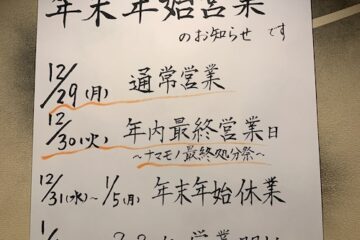 年末年始営業
のお知らせです
12/29(月) 通常営業
12/30(火) 年内最終営業日
～ナマモノ最終処分祭～
12/31(水)～1/5(月) 年末年始休業